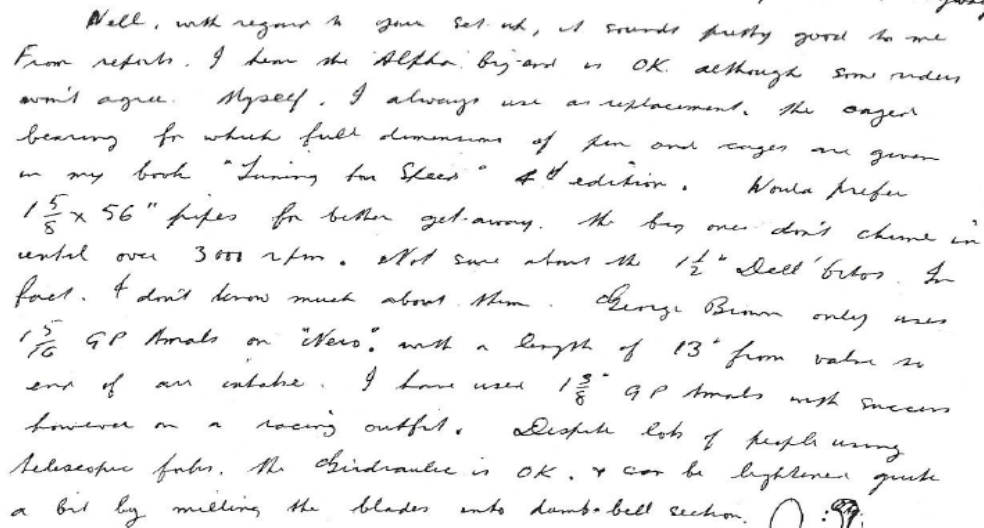 Well, with regard to your set up, it sounds pretty good to me
From reports. I hear the Alpha big-end is OK although some riders
won't agree. Myself. I always use as replacement. the caged
bearing for which full dimensions of pin and cages are given
in my book "Tuning for Speed" 4th edition. Would prefer
1 5/8 x 56" pipes for better get-away. the big ones don't chime in
until over 3000 rpm. Not sure about the 1 1/2" Dell'Ortos. In
fact. I don't know much about them. George Brown only uses
1 5/16 GP Amals on "Nero". with a length of 13" from valve to
end of air intake. I have used 1 3/8" GP Amals with success
however on a racing outfit. Despite lots of people using
telescopic forks. the Girdraulic is OK. & can be lightened quite
a bit by milling the blades into dumb-bell section.